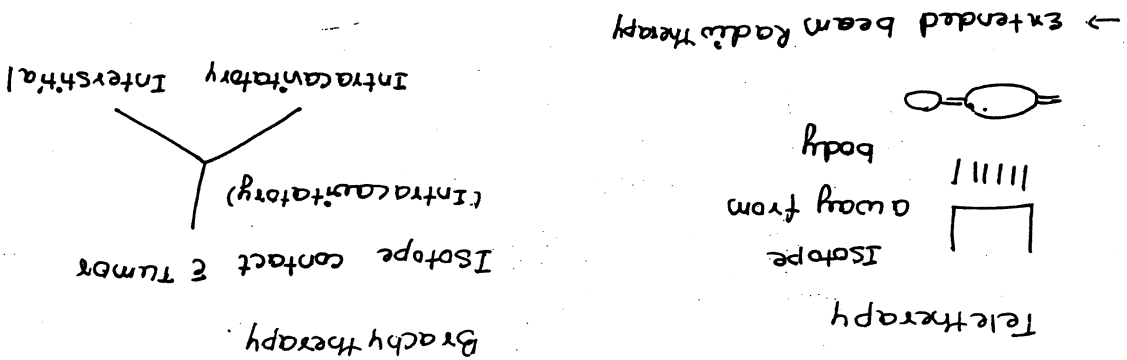 Teletherapy
Isotope
away from
body
→ Extended beam Radiotherapy
Brachytherapy.
Isotope contact c̄ Tumor
(Intracavitatory)
Intracavitatory Interstitial